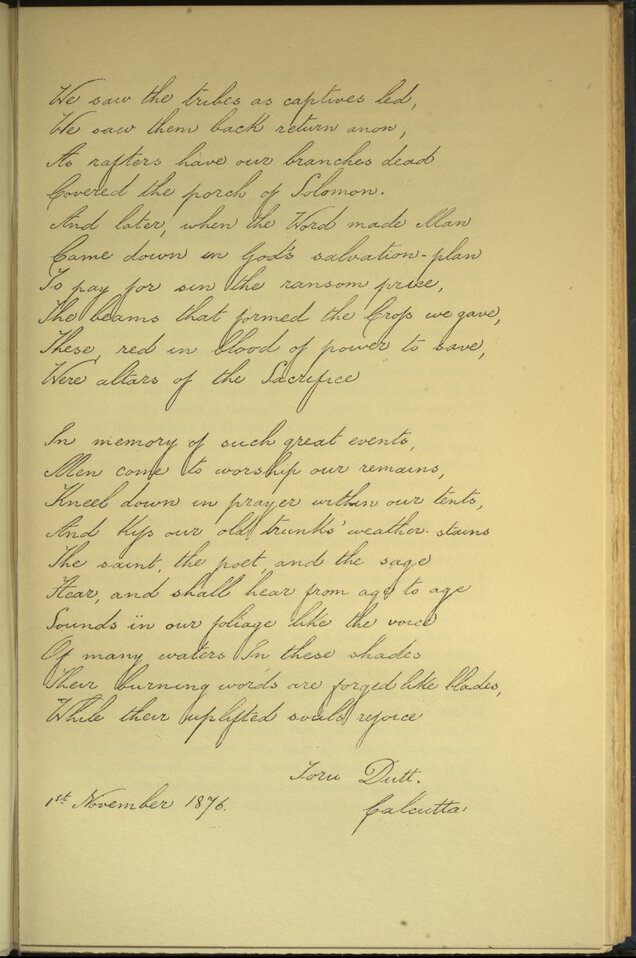 We saw the tribes as captives led,
We saw them back return anon,
As rafters have our branches dead
Covered the porch of Solomon.
And later, when the Word made Man
Came down in God's salvation-plan
To pay for sin the ransom price,
The beams that formed the Cross we gave,
These, red in blood of power to save,
Were altars of the Sacrifice
In memory of such great events,
Men come to worship our remains,
Kneel down in prayer within our tents,
And Kiss our old trunks' weather-stains
The saint, the poet, and the sage
Hear, and shall hear from age to age
Sounds in our foliage like the voice
Of many waters In these shades
Their burning words are forged like blades,
While their uplifted souls rejoice
Toru Dutt.
1st November 1876.
Calcutta